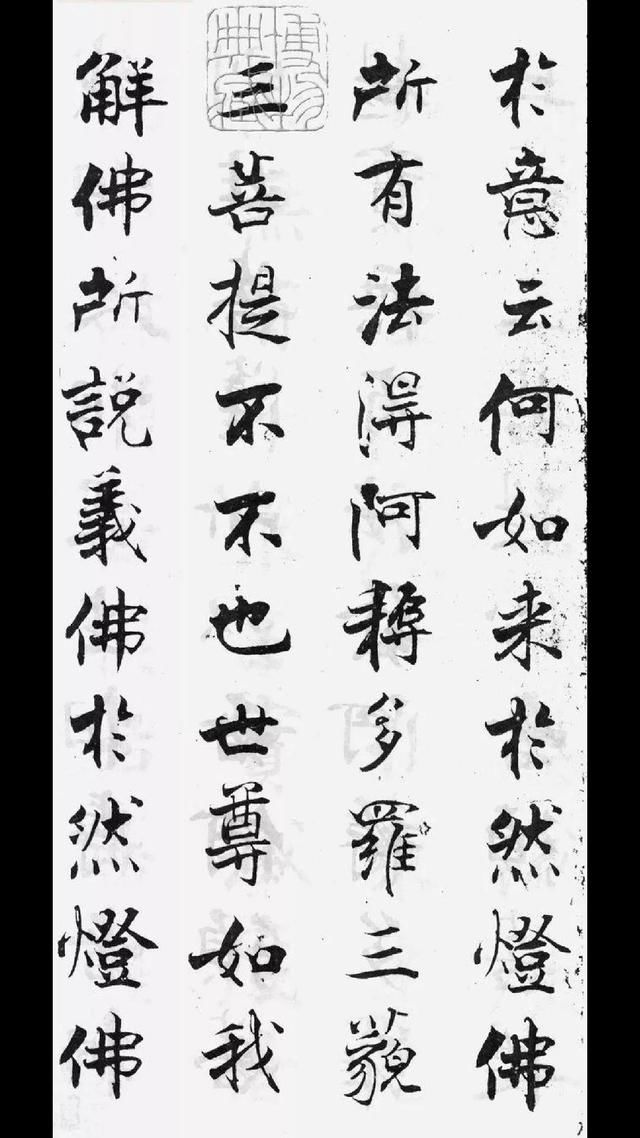 於意云何如来於然燈佛
所有法得阿耨多羅三藐
三菩提不不也世尊如我
解佛所說義佛於然燈佛